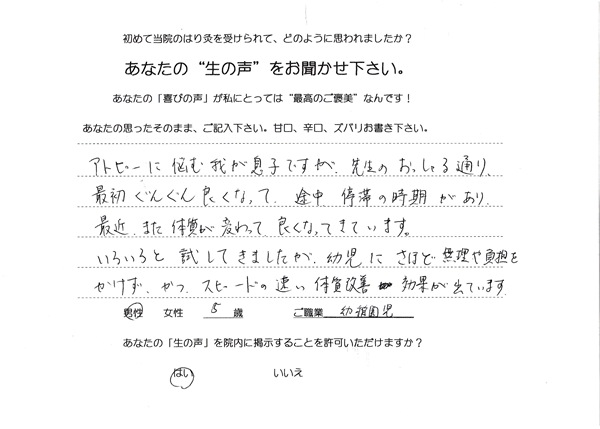 初めて当院のはり灸を受けられて、どのように思われましたか？
あなたの“生の声”をお聞かせ下さい。
あなたの「喜びの声」が私にとっては“最高のご褒美”なんです！
あなたの思ったそのまま、ご記入下さい。甘口、辛口、ズバリお書き下さい。
アトピーに悩む我が息子ですが、先生のおっしゃる通り、
最初ぐんぐん良くなって、途中、停滞の時期があり、
最近、また体質が変わって良くなってきています。
いろいろと試してきましたが、幼児にさほど無理や負担を
かけず、かつ、スピードの速い体質改善 効果が出ています。
男性 女性 5 歳 ご職業 幼稚園児
あなたの「生の声」を院内に掲示することを許可いただけますか？
はい いいえ